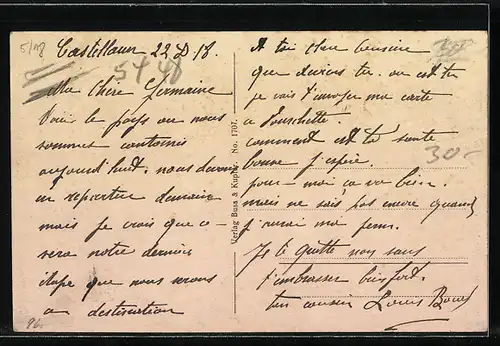 5/18
Castellaun 22 D 18.
5448
Ma chere Germaine
Voici le pays ou nous
sommes cantonnés
aujourd'huit. nous devons
en repartir demain
mais je crois que ce
sera notre dernier
étape que nous serons
a destination
96
Verlag Buss & Kupfer, No. 1707.
A toi chere cousine
que deviens tu. ou est tu
je vais t'envoyer ma carte
a
comment est la sante
bonne j'espere.
pour moi ca va bien.
mais ne sais pas encore quand
j'aurai ma perm.
Je te quitte non sans
t'embrasser bien fort.
ton cousin Louis
30-